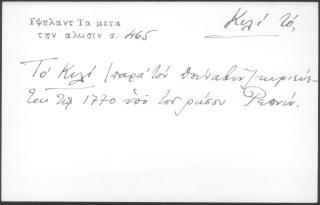 Υψηλαντ Τα μετα
την αλωσιν σ. 465
Κιλί τό,
Τό Κιλί (παρά τόν Δούναβιν) κυριεύε-
ται τῷ 1770 ὑπό τοῦ ρώσου Ρεπνίν.